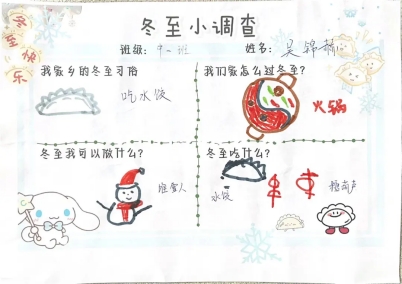 冬至快乐
冬至小调查
班级：中一班 姓名：吴锦
我家乡的冬至习俗
吃水饺
我们家怎么过冬至？
火锅
冬至我可以做什么？
堆雪人
冬至吃什么？
水饺
糖葫芦